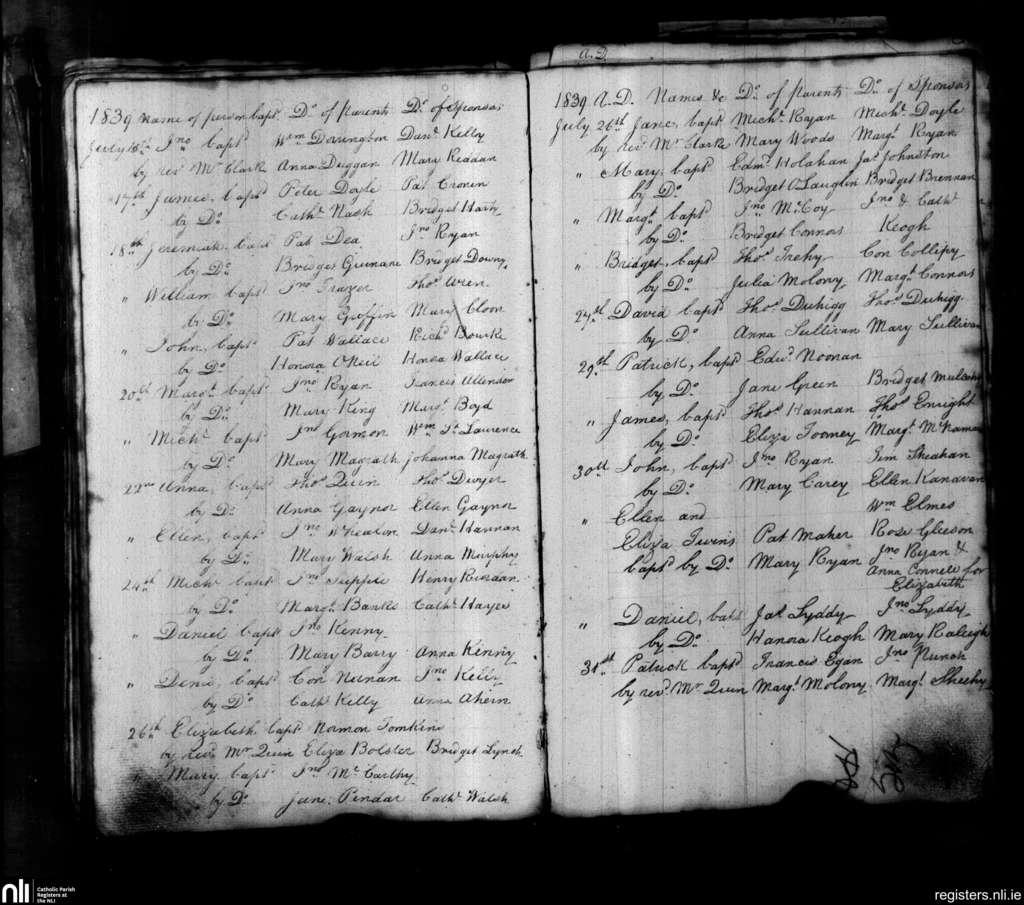 1839 Name of person bapt. Do. of Parents Do. of Sponsors
July Jno. bapt Wm Danl. Kelly
by revd. Mr. Clark Anna Duggan Mary Reddan
17th James, bapt Peter Doyle Pat Cronin
by Do. Cathe. Nash Bridget Harty
18th Jeremiah, bapt Pat Dea Jno Ryan
by Do. Bridget Guinane Bridget Downy
" William bapt Jno Frazer Thos. Wren
by Do. Mary Griffin Mary Clom
" John, bapt Pat Wallace Richd. Bourke
by Do. Honora O'Neil Honora Wallace
20th Margt. bapt Jno Ryan Francis
by Do. Mary King Margt. Boyd
" Michl. bapt Jno Gorman Wm St. Laurence
by Do. Mary Magrath Johanna Magrath
22nd Anna, bapt Thos. Quin Thos. Dwyer
by Do. Anna Gaynor Ellen Gaynor
" Ellen, bapt Jno Wheaton Danl. Hannan
by Do. Mary Walsh Anna Murphy
24th Michl bapt Jno Henry
by Do. Margt. Banks Cathe. Hayes
" Daniel bapt Jno Kenny
by Do. Mary Barry Anna Kenny
" Denis, bapt Con Jno Kelly
by Do. Cathe Kelly Anna Ahern
26th Elizabeth bapt Norman Tomkins
by Revd. Mr Quin Eliza Bolster Bridget Lynch
" Mary bapt Jno McCarthy
by Do. Jane Pindar Cathe. Walsh
A.D.
1839 A.D. Names &c Do. of parents Do. of Sponsors
July 26th Jane, bapt Michl. Ryan Michl. Doyle
by revd Mr. Clarke Mary Woods Margt. Ryan
" Mary, bapt Edmd. Holahan Jas. Johnston
by Do. Bridget O'Laughlin Bridget Brennan
" Margt. bapt Jno McCoy Jno & Cathe
by Do. Bridget Connors Keogh
" Bridget, bapt Thos. Trehy Con Collipy
by Do. Julia Molony Margt. Connors
27th David bapt Thos. Duhigg Thos. Duhigg
by Do. Anna Sullivan Mary Sullivan
29th Patrick, bapt Edwd. Noonan
by Do. Jane Green Bridget
" James, bapt Thos. Hannan Thos. Enright
by Do. Eliza Toomey Margt. McNamara
30th John, bapt Jno Ryan Tim Sheahan
by Do. Mary Carey Ellen Kanavan
" Ellen and Wm Elmes
Eliza Twins Pat Maher Rose Gleeson
bapt by Do. Mary Ryan Jno Ryan &
Anna Connell for
Elizabeth
" Daniel, bapt Jas. Lyddy Jno Lyddy
by Do. Hanora Keogh Mary Raleigh
31st Patrick bapt Francis Egan Jno
by revd. Mr Quin Margt. Molony Margt. Sheehy
nli
Catholic Parish
Registers at
the NLI
registers.nli.ie